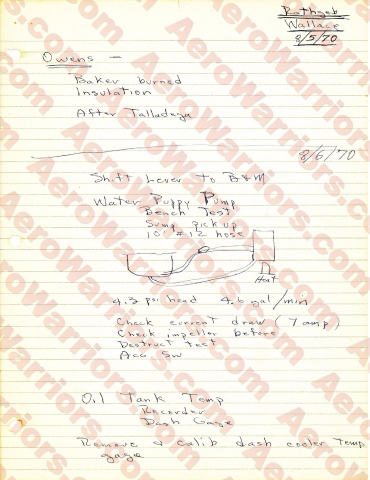 Rathgeb
Wallace
8/5/70
Owens —
Baker burned
Insulation
After Talladega
8/6/70
Shift Lever to B&M
Water Puppy Pump
Bench Test
Sump pick up
10' #12 hose
Heat
4.3 psi head 4.6 gal/min
Check current draw (7 amp)
Check impeller before
Destruct test
Acc Sw
Oil Tank Temp
Recorder
Dash Gage
Remove & Calib dash cooler Temp
gage
AeroWarriors.com